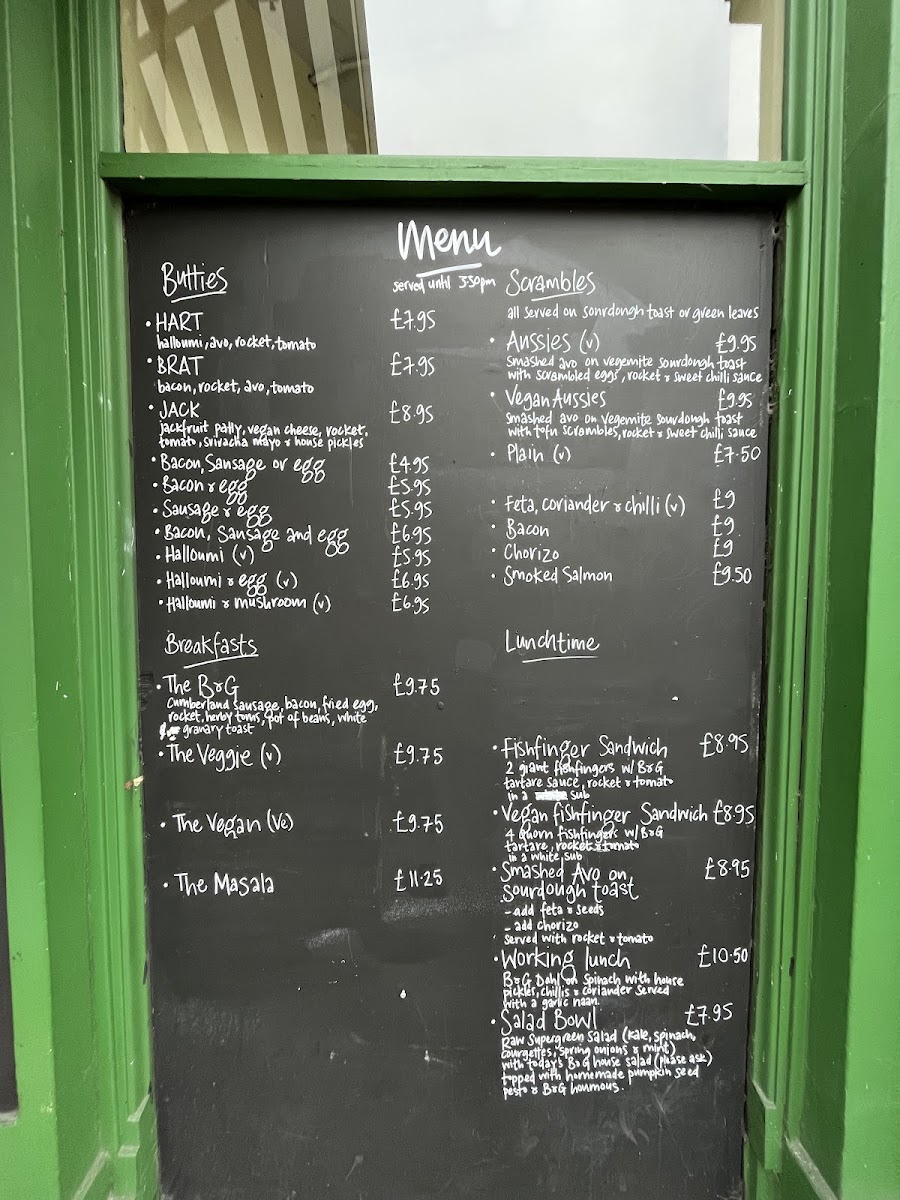 Menu
served until 3:30pm
Butties
• HART £7.95
halloumi, avo, rocket, tomato
• BRAT £7.95
bacon, rocket, avo, tomato
• JACK £8.95
jackfruit patty, vegan cheese, rocket,
tomato, sriracha mayo & house pickles
• Bacon, Sausage or egg £4.95
• Bacon & egg £5.95
• Sausage & egg £5.95
• Bacon, Sausage and egg £6.95
• Halloumi (v) £5.95
• Halloumi & egg (v) £6.95
• Halloumi & mushroom (v) £6.95
Breakfasts
• The B&G £9.75
Cumberland sausage, bacon, fried egg,
rocket, herby toms, pot of beans, white
granary toast
• The Veggie (v) £9.75
• The Vegan (Ve) £9.75
• The Masala £11.25
Scrambles
all served on sourdough toast or green leaves
• Aussies (v) £9.95
Smashed avo on vegemite sourdough toast
with scrambled eggs, rocket & sweet chilli sauce
• Vegan Aussies £9.95
Smashed avo on vegemite sourdough toast
with tofu scrambles, rocket & sweet chilli sauce
• Plain (v) £7.50
• Feta, coriander & chilli (v) £9
• Bacon £9
• Chorizo £9
• Smoked Salmon £9.50
Lunchtime
• Fishfinger Sandwich £8.95
2 giant fishfingers w/ B&G
tartare sauce, rocket & tomato
in a sub
• Vegan fishfinger Sandwich £8.95
4 Quorn fishfingers w/ B&G
tartare, rocket & tomato
in a white sub
• Smashed Avo on £8.95
sourdough toast
- add feta & seeds
- add chorizo
Served with rocket & tomato
• Working lunch £10.50
B&G Dahl on Spinach with house
pickles, chillis & coriander served
with a garlic naan.
• Salad Bowl £7.95
Raw Supergreen Salad (kale, spinach,
courgettes, spring onions & mint)
with today's B&G house salad (please ask)
topped with homemade pumpkin seed
pesto & B&G houmous.